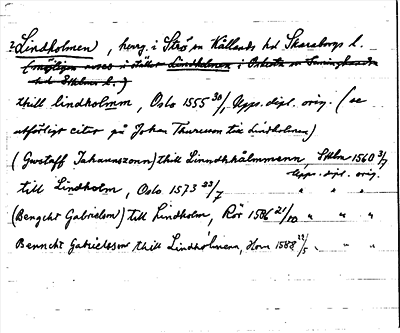 ? Lindholmen, herrg. i Strö sn Kållands hd Skaraborgs l.
(möjligen avses i stället Lindholmen i Orkesta sn Seminghundra
hd Sthlms l.)
thill lindholmm, Oslo 1555 30/1, Upps. dipl. orig. (se
utförligt citat på Johan Thuresson till Lindholmen)
(Gwstaff Jahanszonn) thill Linndhkålmmenn, Sthlm 1560 3/7
Upps. dipl. orig.
till Lindholm, Oslo 1573 23/7 " " "
(Bengcht Gabrielson) till Lindholm, Rör 1586 21/10 " " "
Benncht Gabrielsson thill Lindholmenn, Horn 1588 12/5 " " "